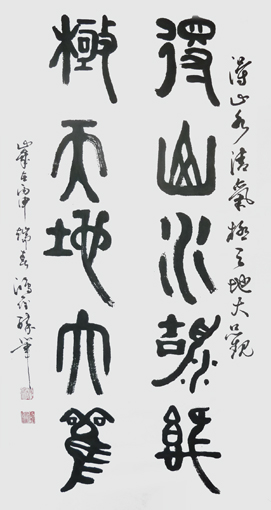 得山水清氣極天地大觀
得山水清氣
極天地大觀
歲在丙申